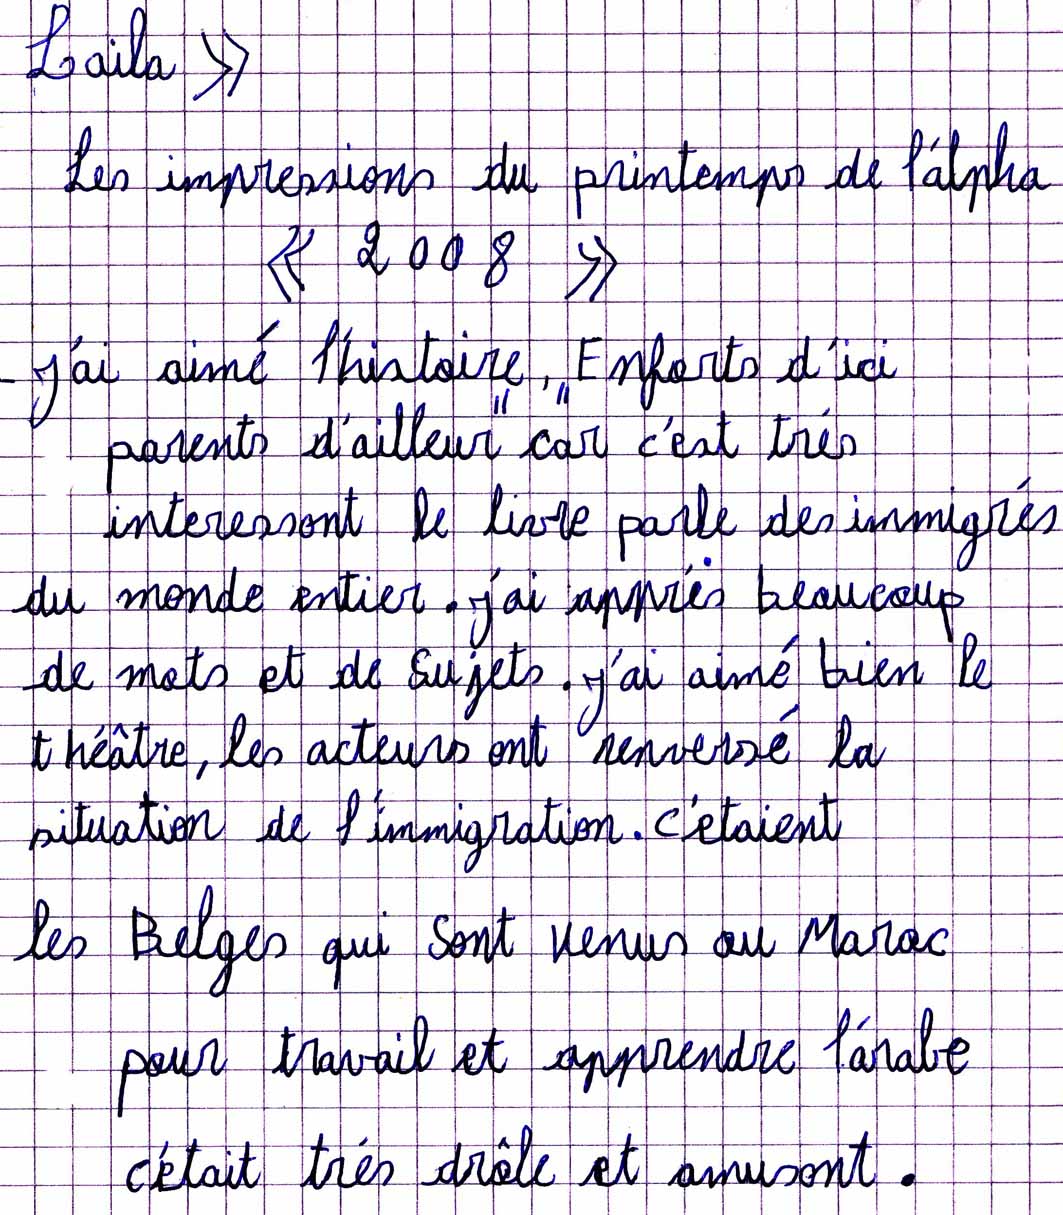 Laila »
Les impressions du printemps de l'álpha
« 2008 »
- j'ai aimé l'histoire, "Enfants d'ici
parents d'ailleur" car c'est trés
interessant le livre parle des immigrés
du monde entier. j'ai appris beaucoup
de mots et de sujets. j'ai aimé bien le
théâtre, les acteurs ont renversé la
situation de l'immigration. c'étaient
les Belges qui sont venus au Maroc
pour travail et apprendre l'árabe
c'était trés drôle et amusant.